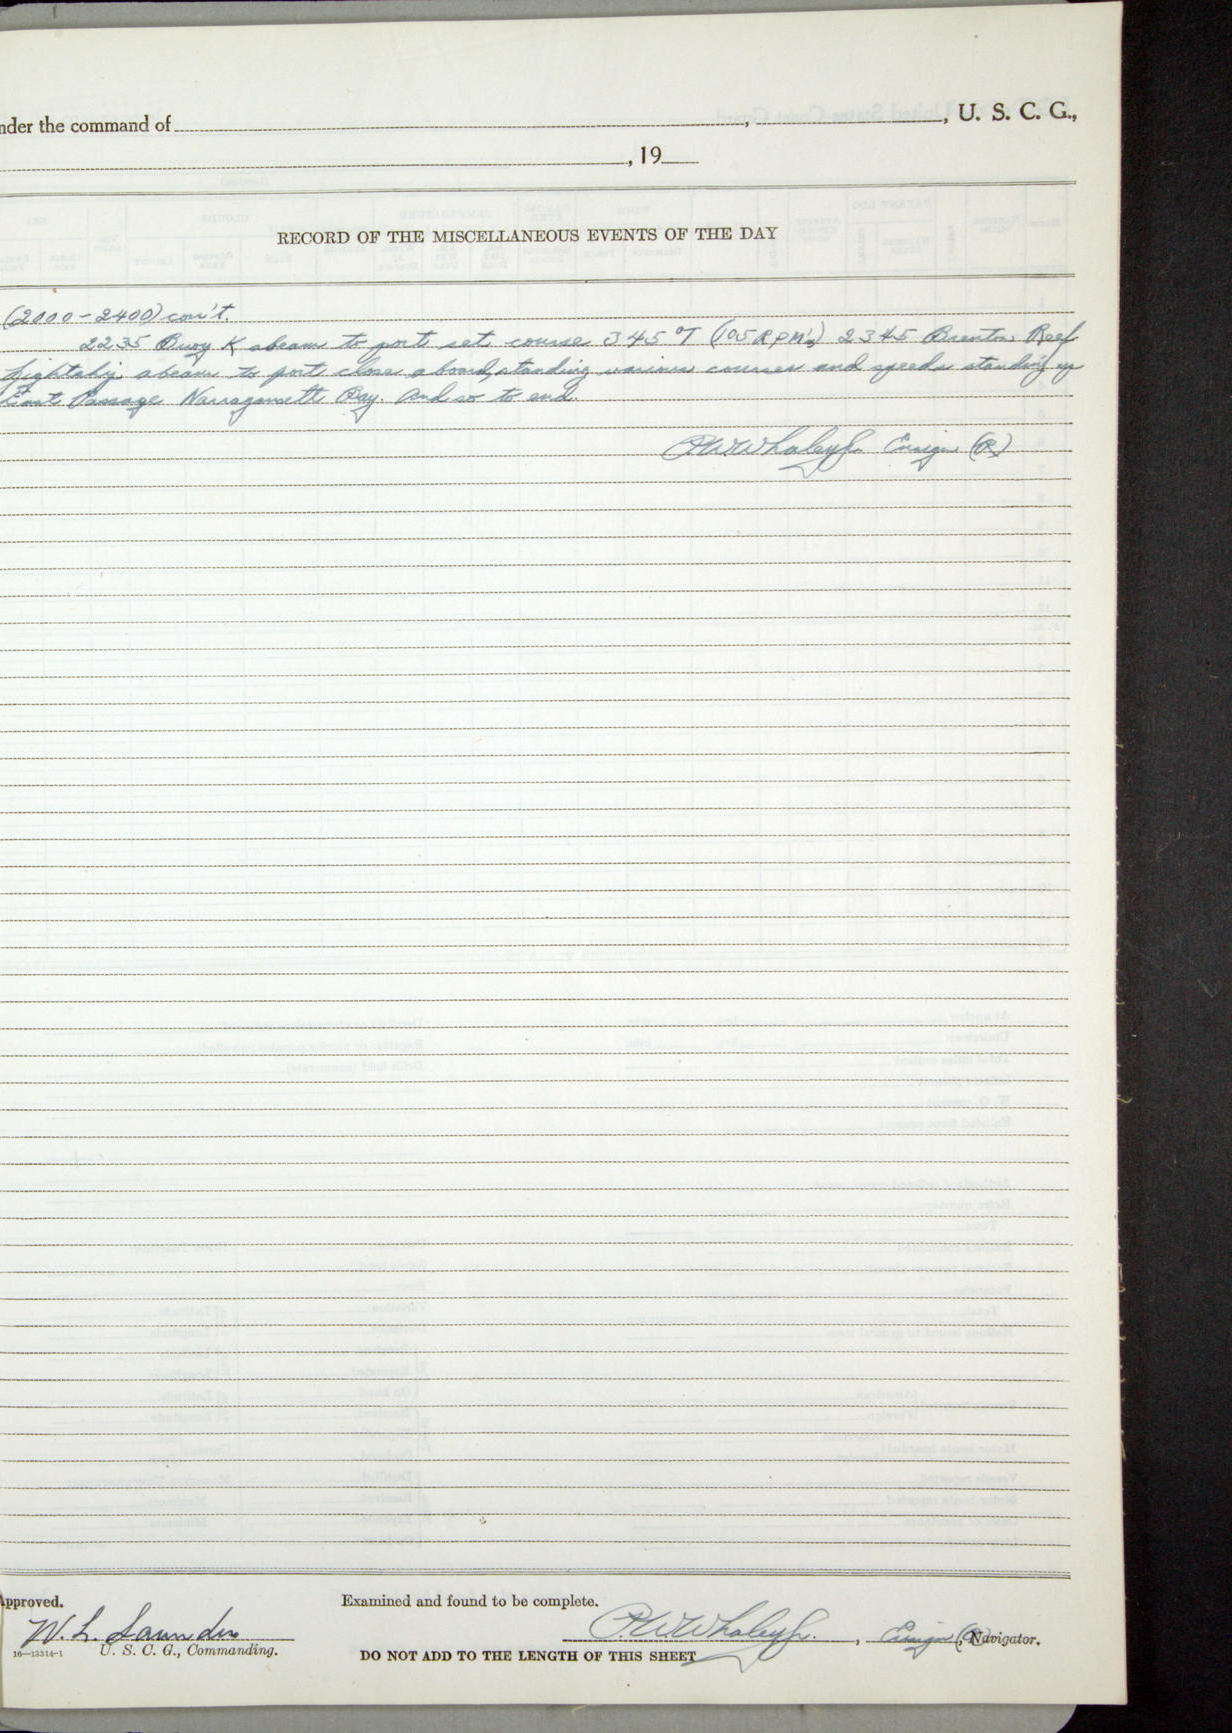 nder the command of , , U. S. C. G.,
, 19
RECORD OF THE MISCELLANEOUS EVENTS OF THE DAY
(2000-2400) con't.
2235 Buoy K abeam to port set course 345 °T (105 RPM's) 2345 Brenton Reef
Lightship abeam to port close aboard, standing various courses and speeds standing up
East Passage Narragansett Bay. And so to end.
P.W. Whaley Jr. Ensign (R)
Approved. Examined and found to be complete.
W. L. Saunders P.W. Whaley Jr. , Ensign (R), Navigator.
16—13314-1 U. S. C. G., Commanding. DO NOT ADD TO THE LENGTH OF THIS SHEET